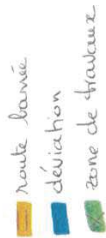 route barrée
déviation
zone de travaux